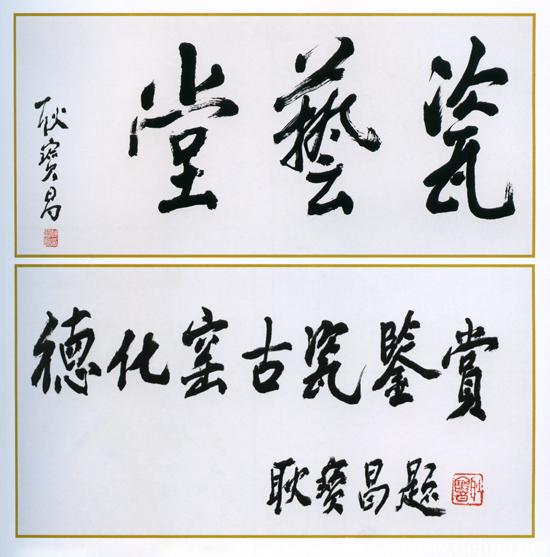 瓷藝堂
耿寶昌
德化窑古瓷鑒賞
耿寶昌題